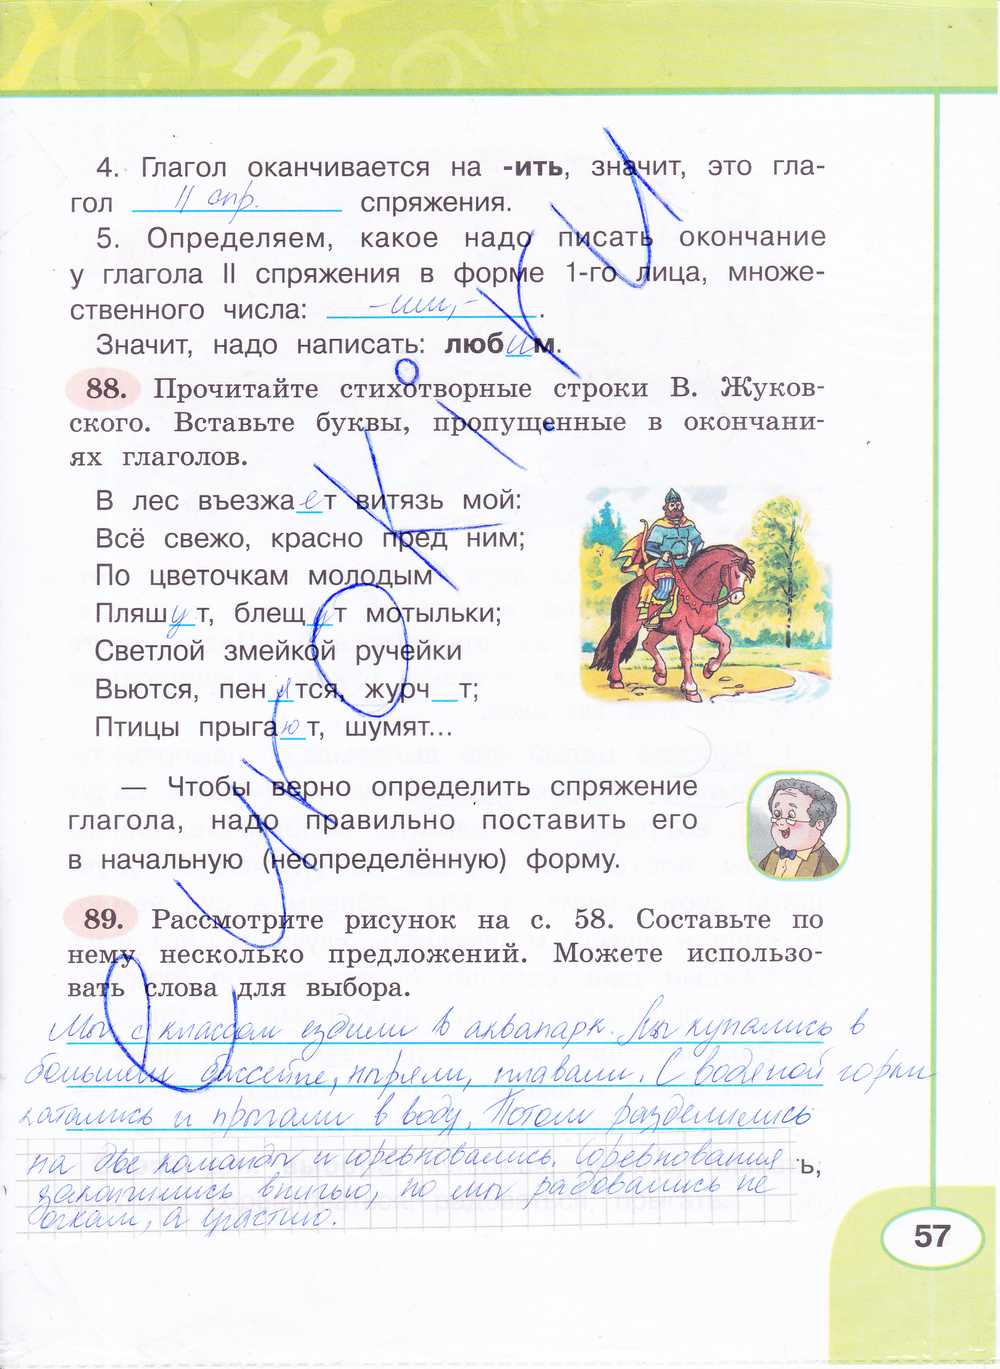 4. Глагол оканчивается на -ить, значит, это гла-
гол II спр. спряжения.
5. Определяем, какое надо писать окончание
у глагола II спряжения в форме 1-го лица, множе-
ственного числа: -им,-.
Значит, надо написать: любим.
88. Прочитайте стихотворные строки В. Жуков-
ского. Вставьте буквы, пропущенные в окончани-
ях глаголов.
В лес въезжает витязь мой:
Всё свежо, красно пред ним;
По цветочкам молодым
Пляшут, блещут мотыльки;
Светлой змейкой ручейки
Вьются, пенятся, журч__т;
Птицы прыгают, шумят...
— Чтобы верно определить спряжение
глагола, надо правильно поставить его
в начальную (неопределённую) форму.
89. Рассмотрите рисунок на с. 58. Составьте по
нему несколько предложений. Можете использо-
вать слова для выбора.
Мы с классом ездили в аквапарк. Мы купались в
большем бассейне, ныряли, плавали. С водяной горки
катались и прыгали в воду. Потом разделились
на две команды и соревновались. Соревнования
ь,
закончились вничью, но мы радовались не
очкам, а участию.
57